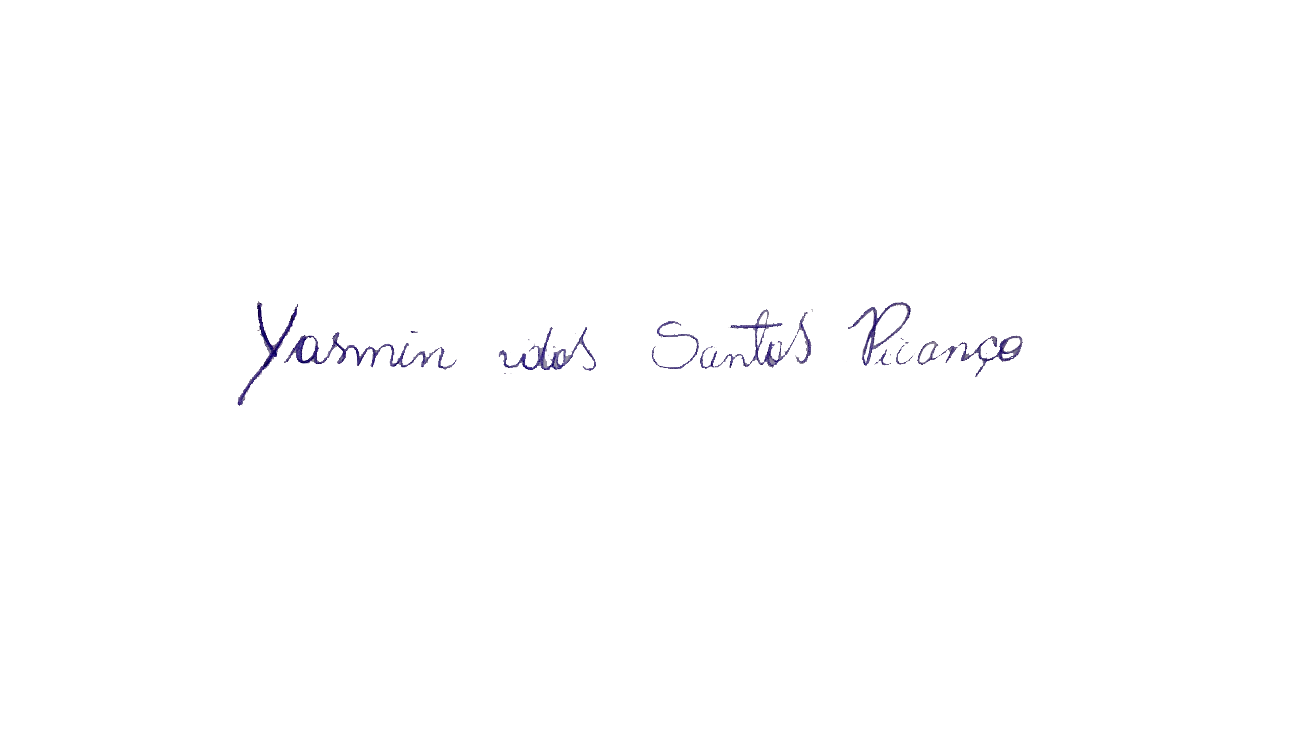 Yasmin dos Santos Picanço